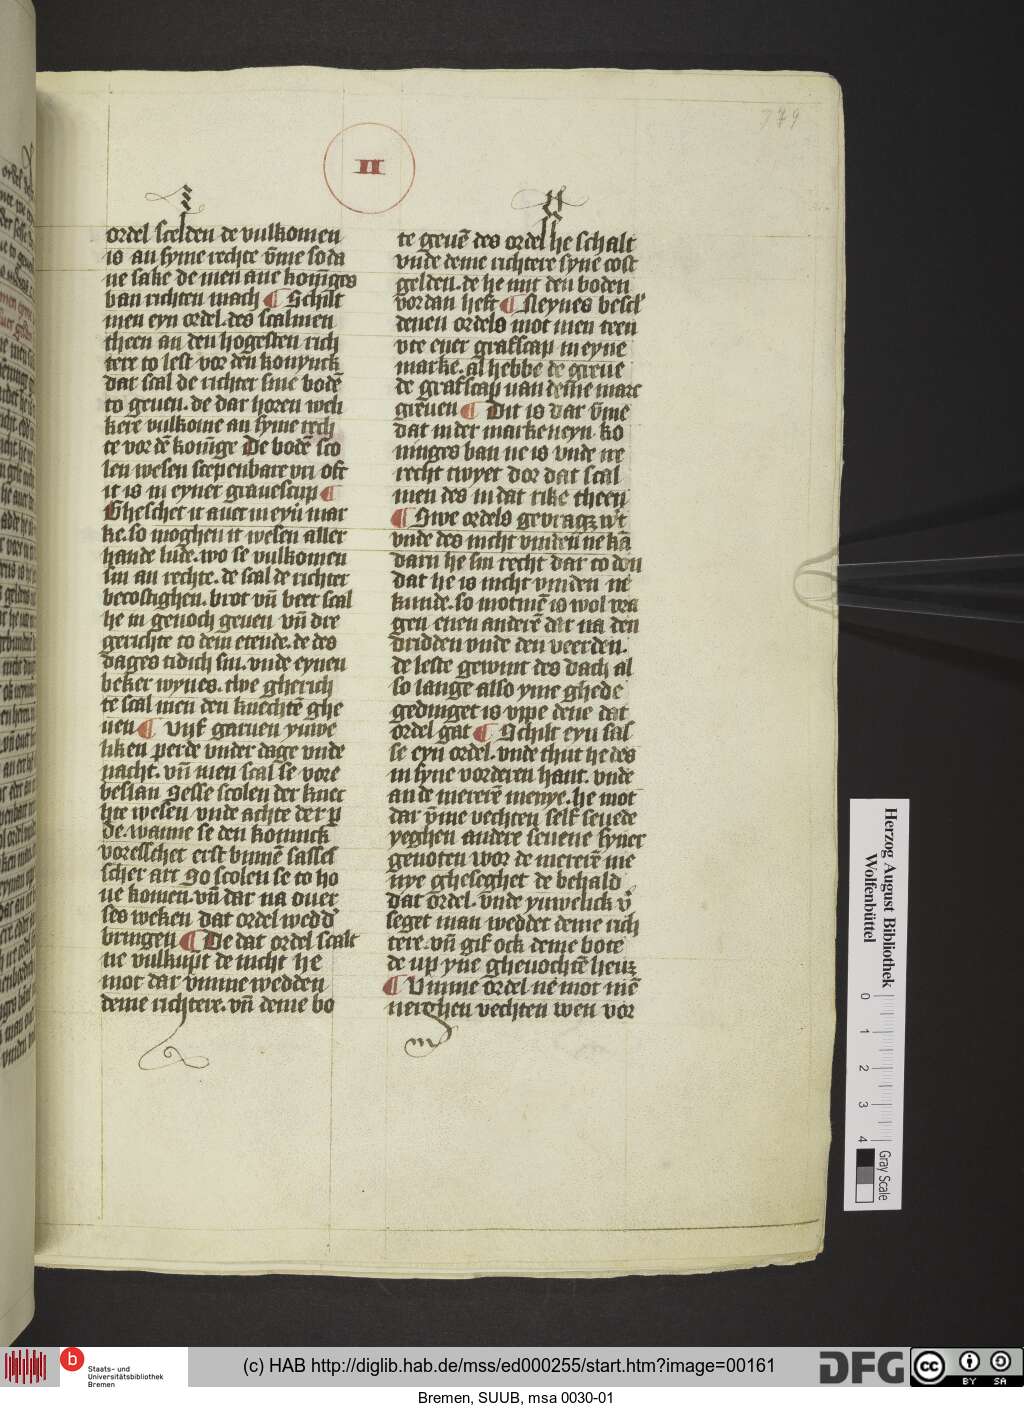 II
779
ordel scelden de vulkomen
is an syme rechte v̄me so da
ne sake de men aue kōniges
ban richten mach ¶ Schilt
men eyn ordel. des scalmen
theen an den hogesten rich
tere to lest vor den konynck
dar scal de richter sine bodē
to geuen. de dat horen welc
kere vulkome an syme rech
te vor dē kōnige De bodē sco
len wesen scepenbare vri oft
it is in eyner grauescup ¶
Gheschet it auer in eyn mar
ke. so moghen it wesen aller
hande lude. wo se vulkomen
sin an rechte. de scal de richter
becostighen. brot vn̄ beer scal
he in genoch geuen vn̄ dre
gerichte to dem etende. de des
dages tidich sin. vnde eynen
beker wynes. twe gherich
te scal men den knechtē ghe
uen ¶ vijf garuen yuwe
liken perde vnder dage vnde
nacht. vn̄ men scal se vore
beslan Sesse scolen der knec
hte wesen vnde achte der p
de. wanne se den konnick
voresschet erst bīnnē sasses
scher art So scolen se to ho
ue komen. vn̄ dar na ouer
ses weken dat ordel wedd
bringen ¶ De dat ordel scalt
ne vulkupt he nicht he
mot dar vmme wedden
deme richtere. vn̄ deme bo
te geuē des ordel he schalt
vnde deme richtere syne cost
gelden. de he mit den boden
vordan heft ¶ Neynes bescl
denen ordels mot men teen
vte ener grafscap in eyne
marke. al hebbe de greue
de grafscap van deme marc
greuen ¶ Dit is dar v̄me
dat in der marke neyn ko
ninges ban ne is vnde ere
recht twyet dor dat scal
men des in dat rike theen
¶ Swe ordels gevraget wt
vnde des nicht vinden ne kā
darn he sin recht dar to don
dat he is nicht vinden ne
kunde. so motmē is wol vra
gen enen anderē dar na den
dridden vnde den veerden.
de leste gewint des dach al
so lange also yme ghede
gedinget is vppe dene dat
ordel gat ¶ Schilt eyn sas
se eyn ordel. vnde thut he des
in syne vorderen hant. vnde
an de mererē menye. he mot
dar v̄me vechten self seuede
yeghen andere seuene syner
genoten wor de mererē me
nye gheseghet de behald
dat ordel. vnde yuwelick v
seget man weddet deme rich
tere. vn̄ gif ock deme bote
de up yne ghevochtē heuet
¶ Vmme ordel ne mot mē
nerghen vechten wen vor
Herzog August Bibliothek
Wolfenbüttel
0 1 2 3 4
Gray Scale
b
Staats- und
Universitätsbibliothek
Bremen
(c) HAB http://diglib.hab.de/mss/ed000255/start.htm?image=00161
DFG
cc BY SA
Bremen, SUUB, msa 0030-01